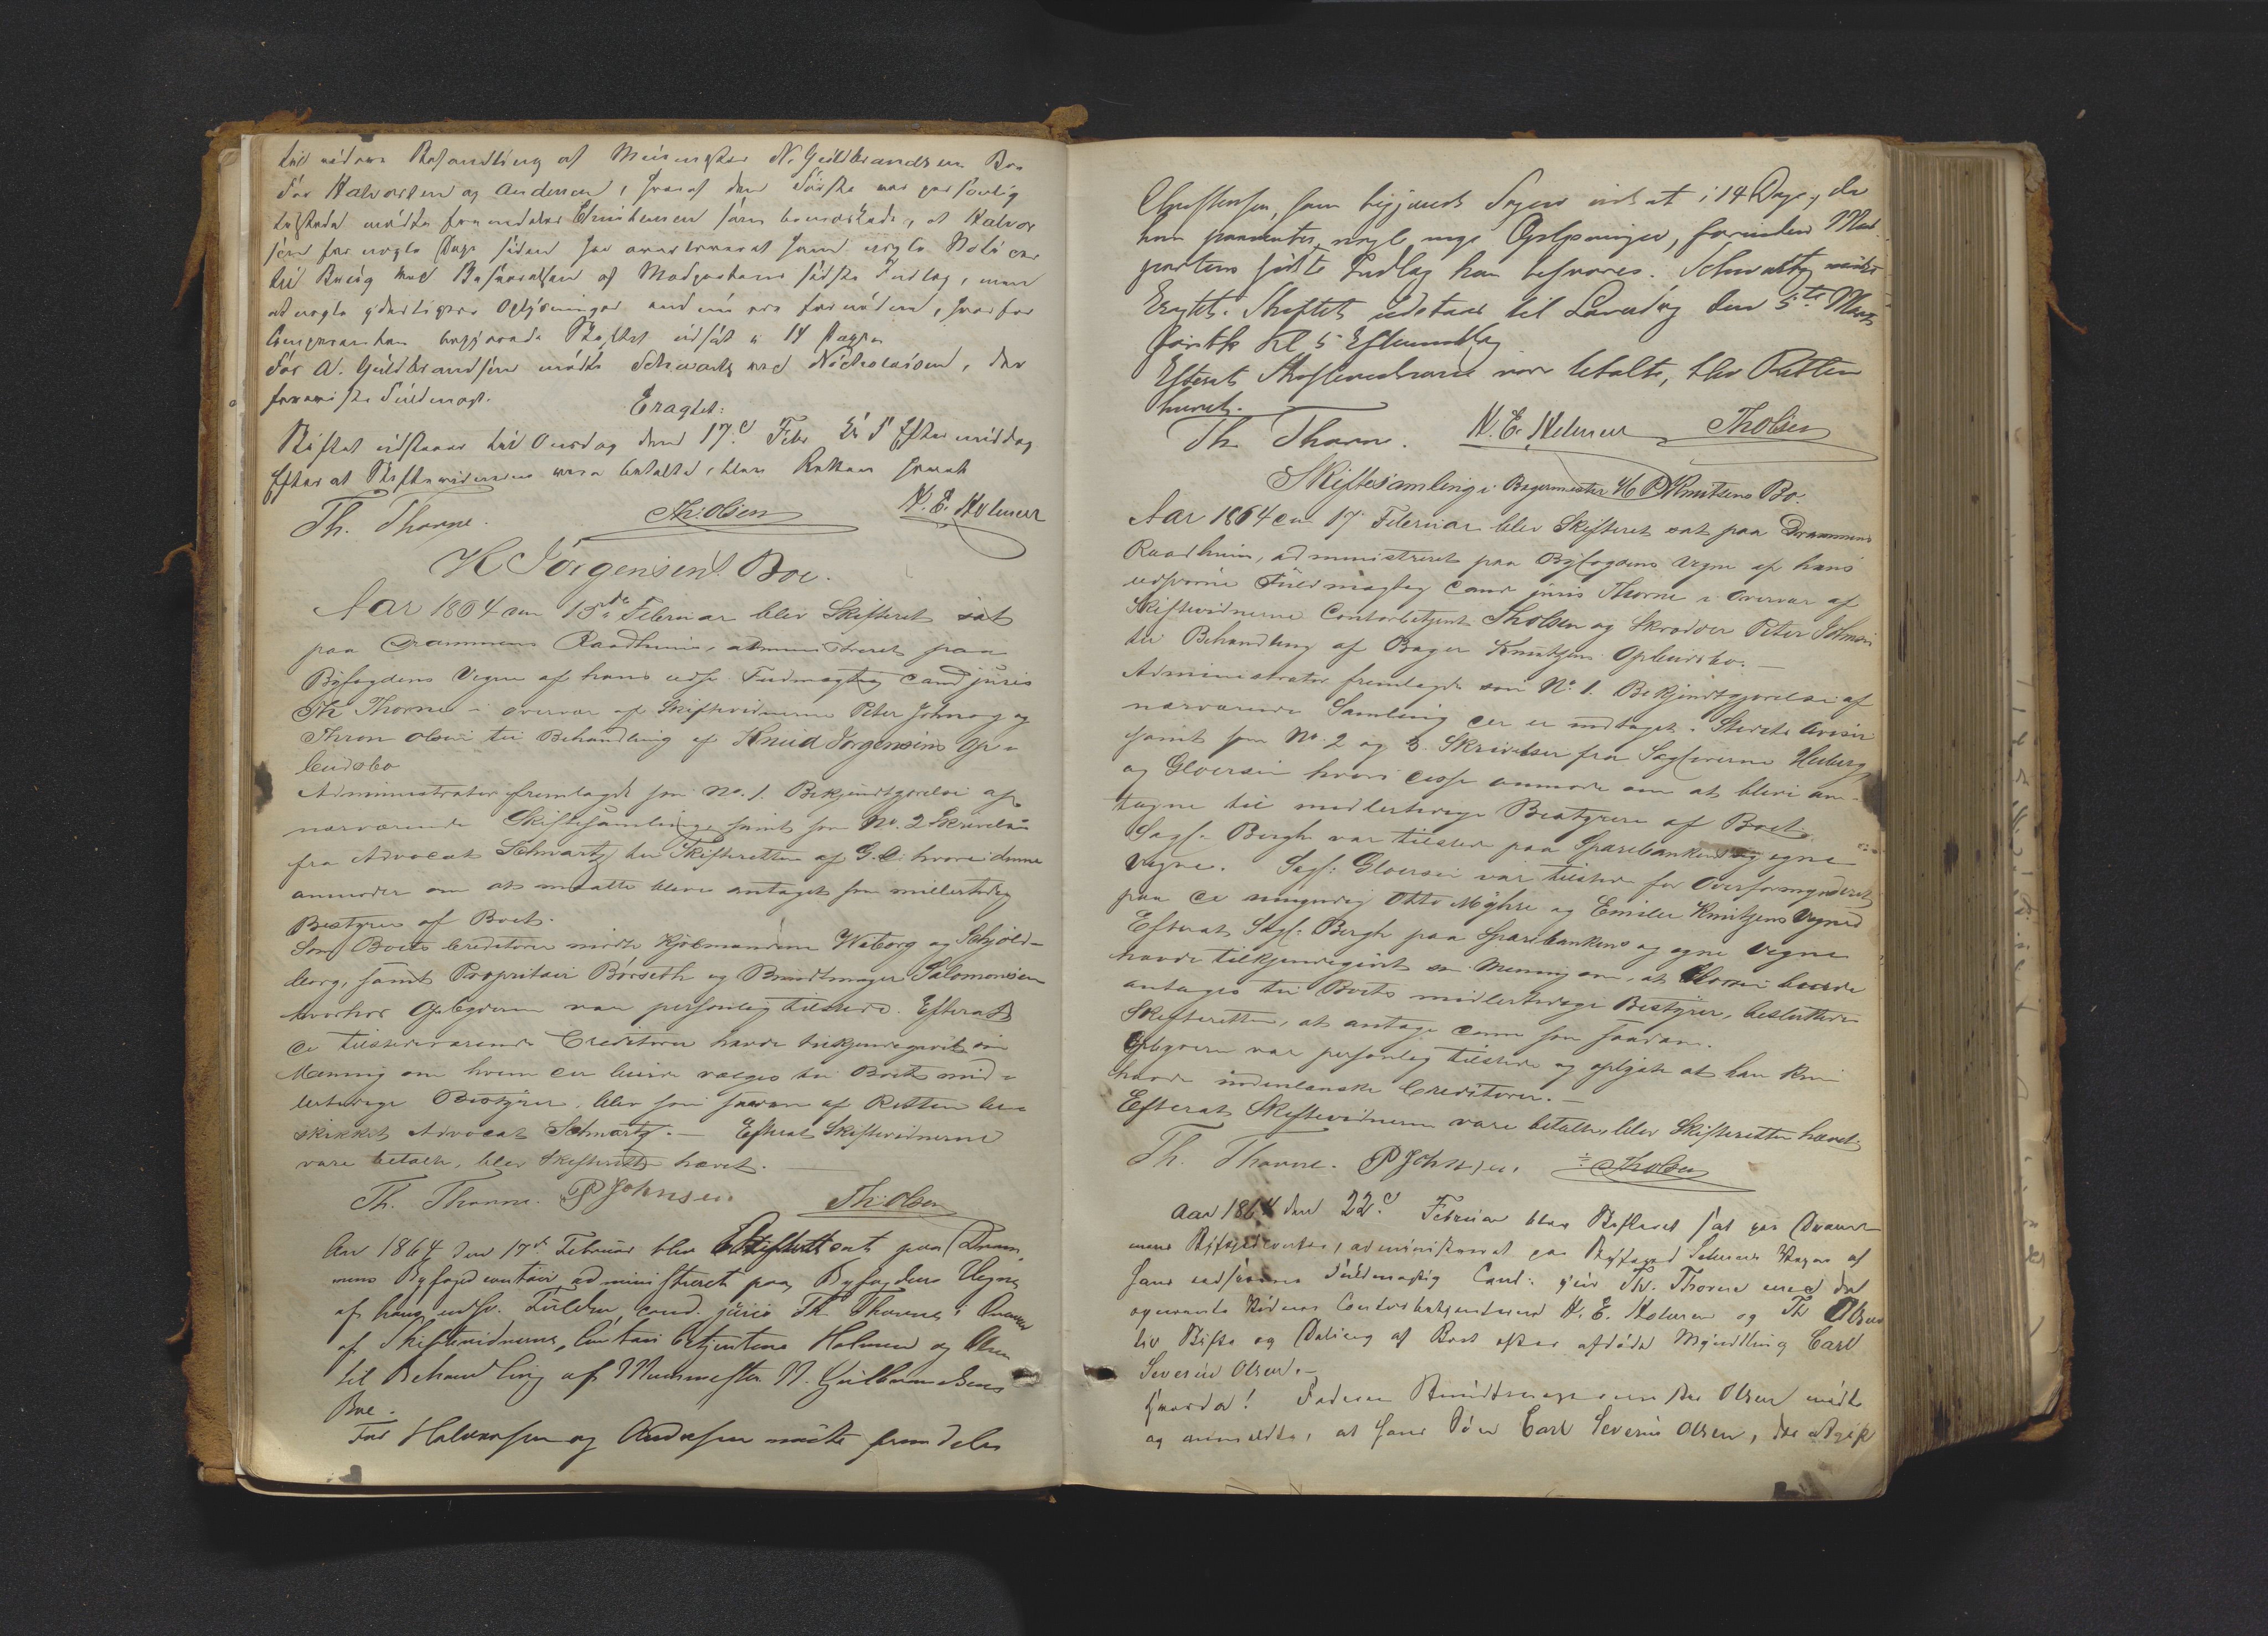 til videre Behandling af Muurmester N. Guldbrandsens Bo
For Halvorsen og Andersen, hvoraf den Første var personlig
tilstede mødte fremdeles Christensen som bemærkede, at Halvor
sen for nogle Dage siden har overleveret ham nogle Notizer
til Brug ved Besvarelsen af Modpartens sidste Indlæg, men
at nogle yderligere Oplysninger endnu ere fornødne, hvorfor
Comparenten begjærede Skiftet udsat i 14 Dage
For A. Guldbrandsen mødte Schwartz ved Nicolaisen, der
foreviste Fuldmagt.
Eragtet:
Skiftet udstaaer til Onsdag den 17d Febr Kl 5 Eftermiddag
Efter at Skiftevidnerne vare betalte, blev Retten hævet
Th. Thorne. Th: Olsen N. E. Holmen
K Jörgensens Boe.
Aar 1864 den 15de Februar blev Skifteret sat
paa Drammens Raadhuus, administreret paa
Byfogdens Vegne af hans edsv. Fuldmægtig Cand juris
Th Thorne i overvær af Skiftevidnerne Peter Johnsen og
Thron Olsen til Behandling af Knud Jorgensens Op-
budsbo
Administrator fremlagde som No. 1. Bekjendtgjörelse af
nærværende Skiftesamling samt som No. 2 Skrivelse
fra Advocat Schwartz til Skifteretten af G. D. hvori denne
anmoder om at maatte blive antaget som midlertidig
Bestyrer af Boet.
Som Boets Creditorer mödte Kjöbmændene Wiborg og Schjöld-
borg, samt Propritair Börseth og Bundtmager Salomonsen
hvorhos Opbyderen var personlig tilstede. Efterat
de tilstedeværende Creditorer havde tilkjendegivet sin
Mening om hvem der burde vælges til Boets mid-
lertidige Bestyrer, blev som saadan af Retten be-
skikket Advocat Schwartz. — Efterat Skiftevidnerne
vare betalte, blev Skifteretten hævet.
Th. Thorne. P Johnsen Th: Olsen
Aar 1864 den 17d Februar blev Skifteret sat paa Dram
mens Byfogedcontoir administreret paa Byfogdens Vegne
af hans edsv. Fuldm. cand. juris Th. Thorne i Overvær
af Skiftevidnerne, Contoirbetjentene Holmen og Olsen
til Behandling af Muurmester N. Gulbrandsens
Boe.
For Halvorsen og Andersen mödte fremdeles
Christensen, som begjærede Sagen udsat i 14 Dage, da
han forventer nogle nye Oplysninger, forinden Mod
partens sidste Indlæg kan besvares. Schwartz mödte
Eragtet: Skiftet udstaaer til Löverdag den 5te Marts
förstk. Kl. 5 Eftermiddag
Efterat Skiftevidnerne vare betalte, blev Retten
hævet.
Th. Thorne. N. E. Holmen Th Olsen
Skiftesamling i Bagermester H P Knutzens Bo.
Aar 1864 den 17 Februar blev Skifteret sat paa Drammens
Raadhuus, administreret paa Byfogdens Vegne af hans
edsvorne Fuldmægtig Cand juris Thorne i Overvær af
Skiftevidnerne Contorbetjent Th Olsen og Skrædder Peter Johnsen
til Behandling af Bager Knutzens Opbudsbo. —
Administrator fremlagde som No. 1. Bekjendtgjörelse af
nærværende Samling der er indtaget i Stedets Aviser
samt som No. 2 og 3. Skrivelser fra Sagförerne Heiberg
og Gloersen hvori disse anmode om at blive an-
tagne til midlertidige Bestyrere af Boet.
Sagf. Bergh var tilstede paa Sparebankens og egne
Vegne. Sagf: Gloersen var tilstede for Overformynderiet
paa de umyndig Otto Myhre og Emilie Knutzens Vegne
Efterat Sagf. Bergh paa Sparebankens og egne Vegne
havde tilkjendegivet sin Mening om, at Gloersen burde
antages til Boets midlertidige Bestyrer, besluttede
Skifteretten, at antage denne som saadan.
Opbyderen var personlig tilstede og oplyste at han kun
havde indenlanske Creditorer. —
Efterat Skiftevidnerne vare betalte, blev Skifteretten hævet.
Th. Thorne. P Johnsen. Th Olsen
Aar 1864 den 22d Februar blev Skifteret sat paa Dram
mens Byfogedcontor, administreret paa Byfoged Vegne af
hans edsvorne Fuldmægtig Cand: jur Th. Thorne med de
opnævnte Vidner Contorbetjentene N. E. Holmen og Th Olsen
til Skifte og Deling af Boet efter afdöde Myndling Carl
Severin Olsen. —
Hvorda! Faderen Olsen mödte
og anmeldte, at hans Sön Carl Severin Olsen, der afgik